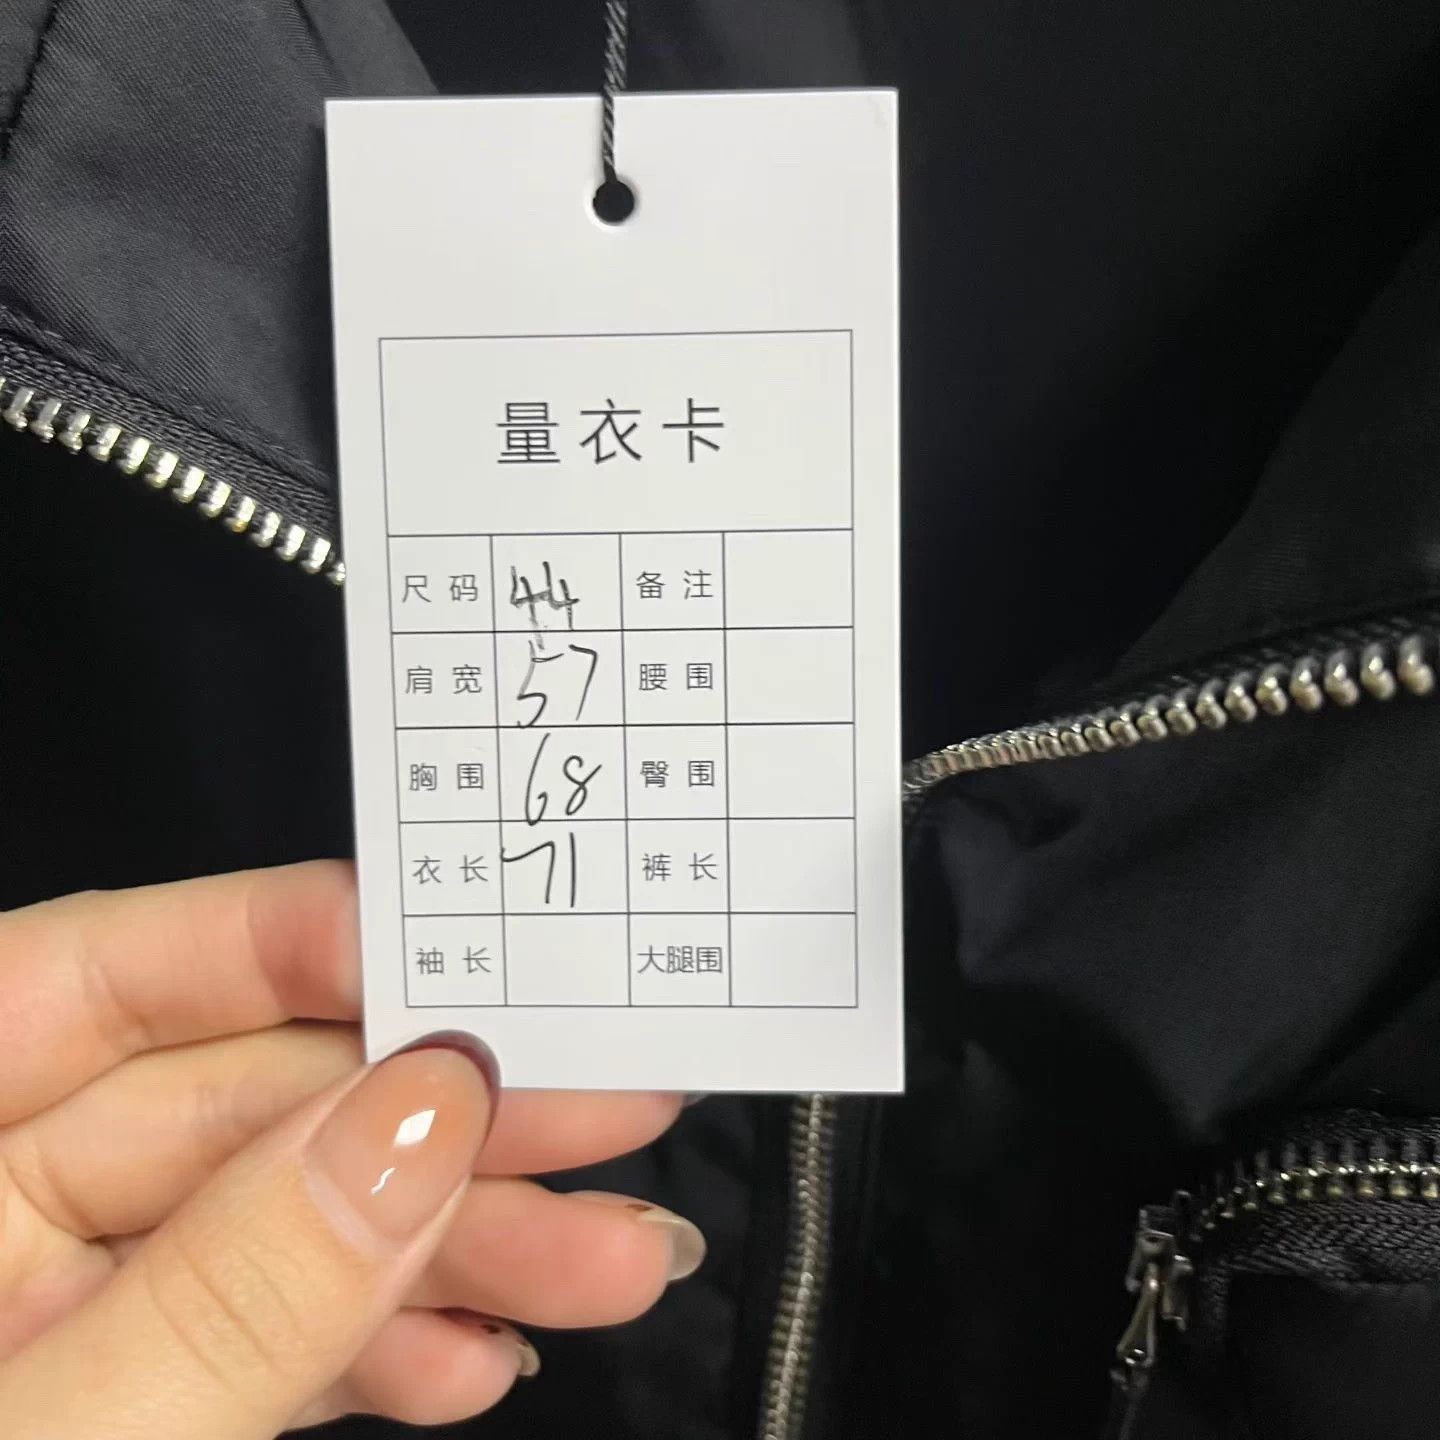 量衣卡
尺码 44 备注
肩宽 57 腰围
胸围 68 臀围
衣长 71 裤长
袖长 大腿围